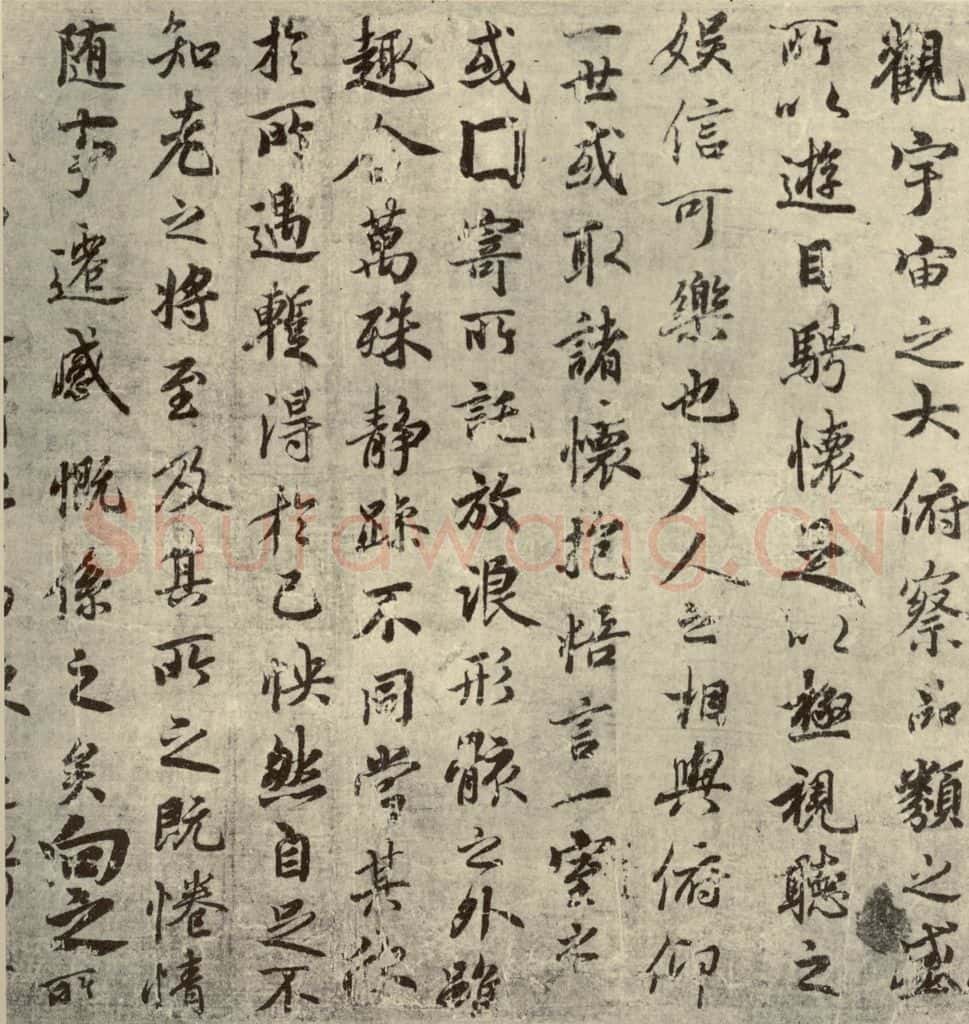 觀宇宙之大俯察品類之盛
所以遊目騁懷足以極視聽之
娛信可樂也夫人之相與俯仰
一世或取諸懷抱悟言一室之
或因寄所託放浪形骸之外雖
趣舍萬殊静躁不同當其欣
於所遇暫得於己怏然自足不
知老之將至及其所之既惓情
随事遷感慨係之矣向之所
Shufawang.CN